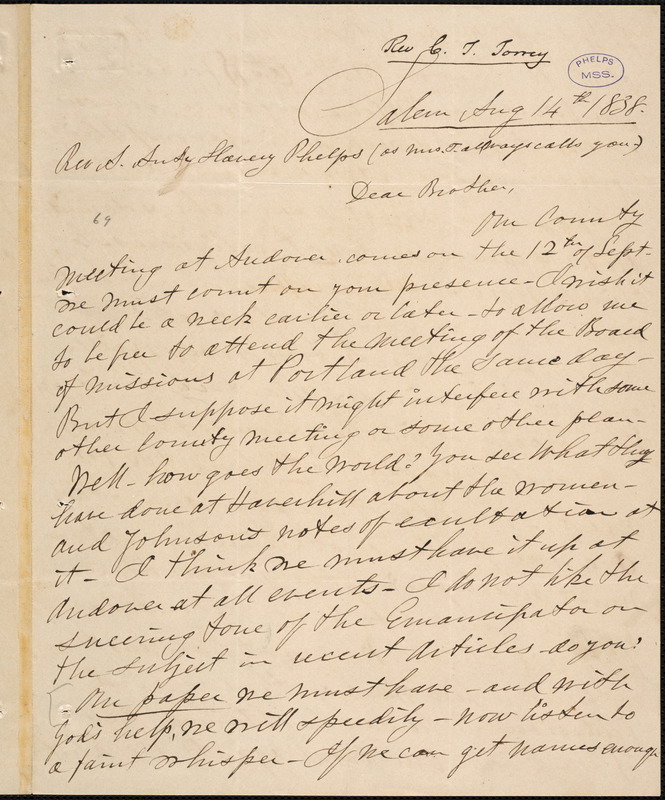 Rev C. T. Torrey
PHELPS
MSS.
Salem Aug 14th 1838.
Rev A. Anti Slavery Phelps (as Mrs. T. always calls you)
Dear Brother,
69
Our County
meeting at Andover comes on the 12th of Sept-
we must count on your presence - I wish it
could be a week earlier or later - to allow me
to be free to attend the meeting of the Board
of missions at Portland the same day -
But I suppose it might interfere with some
other county meeting or some other plan -
Well - how goes the world? You see what they
have done at Haverhill about the women -
and Johnson's notes of exultation at
it - I think we must have it up at
Andover at all events - I do not like the
sneering tone of the Emancipator on
the subject in recent articles - do you?
Our paper we must have - and with
God's help, we will speedily - now listen to
a faint whisper - If we can get names enough